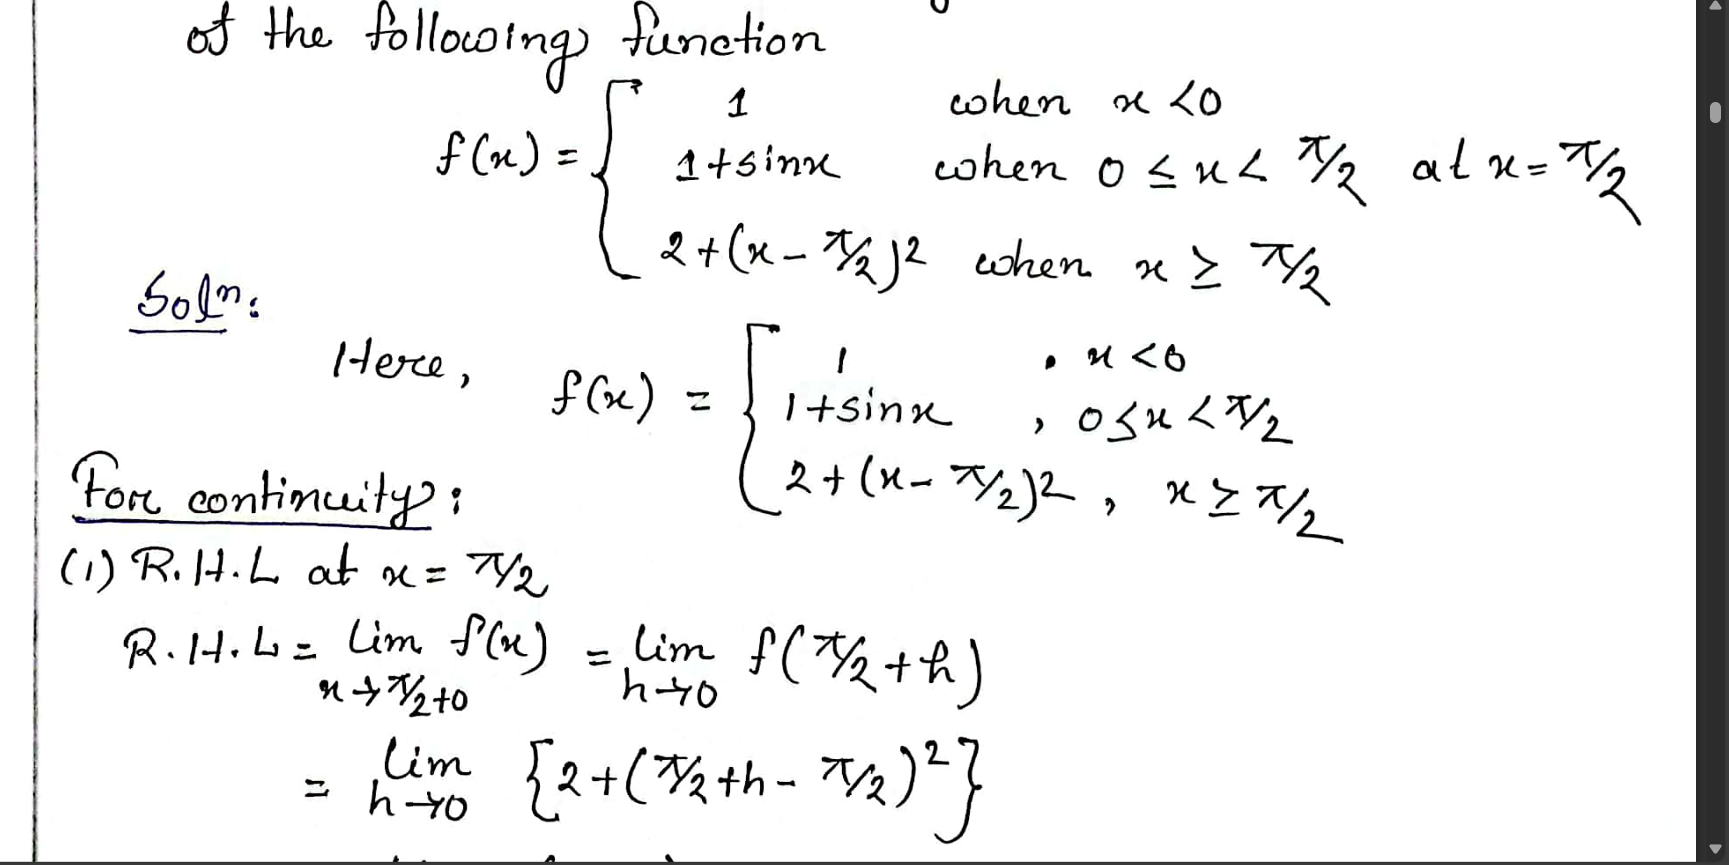 of the following function
f(x) = { 1 when x <0
1+sinx when 0 ≤ x < π/2 at x = π/2
2+(x-π/2)2 when x ≥ π/2
Soln:
Here, f(x) = { 1 , x <0
1+sinx , 0≤x <π/2
2+(x-π/2)2 , x ≥ π/2
For continuity:
(1) R.H.L at x = π/2
R.H.L = lim x→π/2+0 f(x) = lim h→0 f(π/2+h)
= lim h→0 {2+(π/2+h-π/2)2}